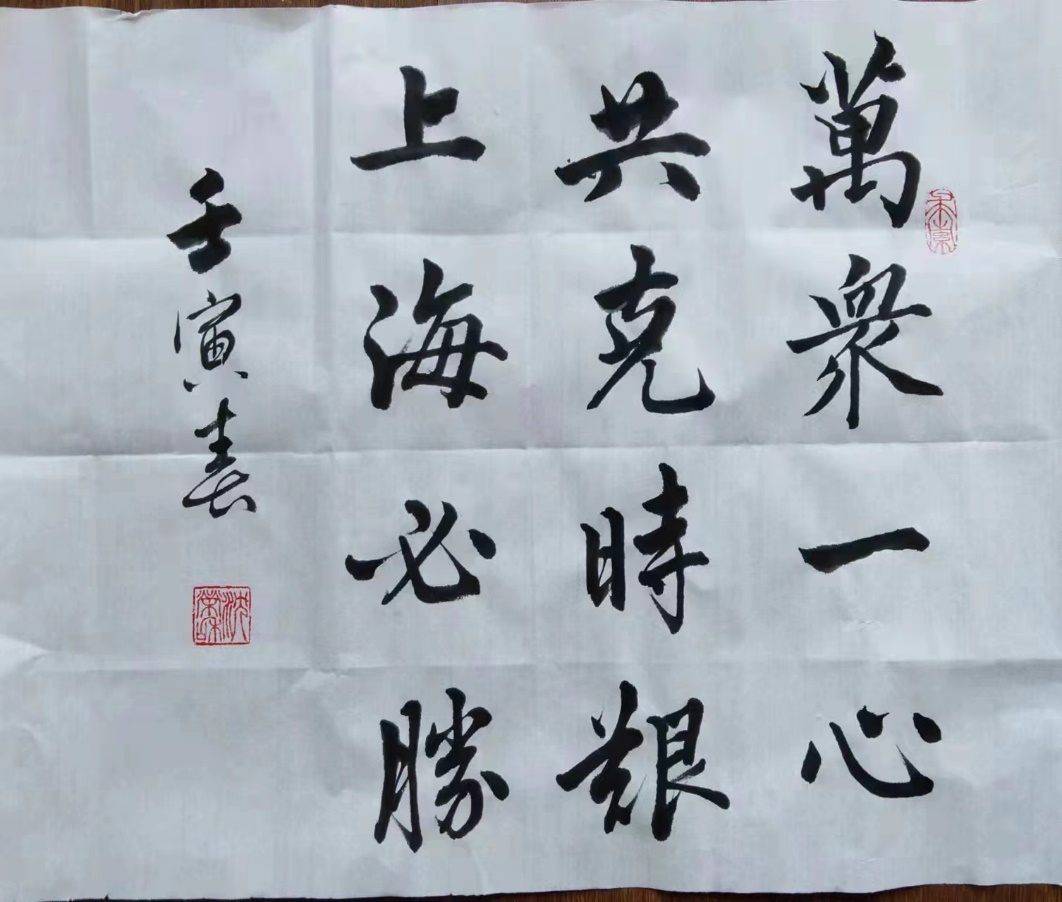 萬衆一心
共克時艱
上海必勝
壬寅春